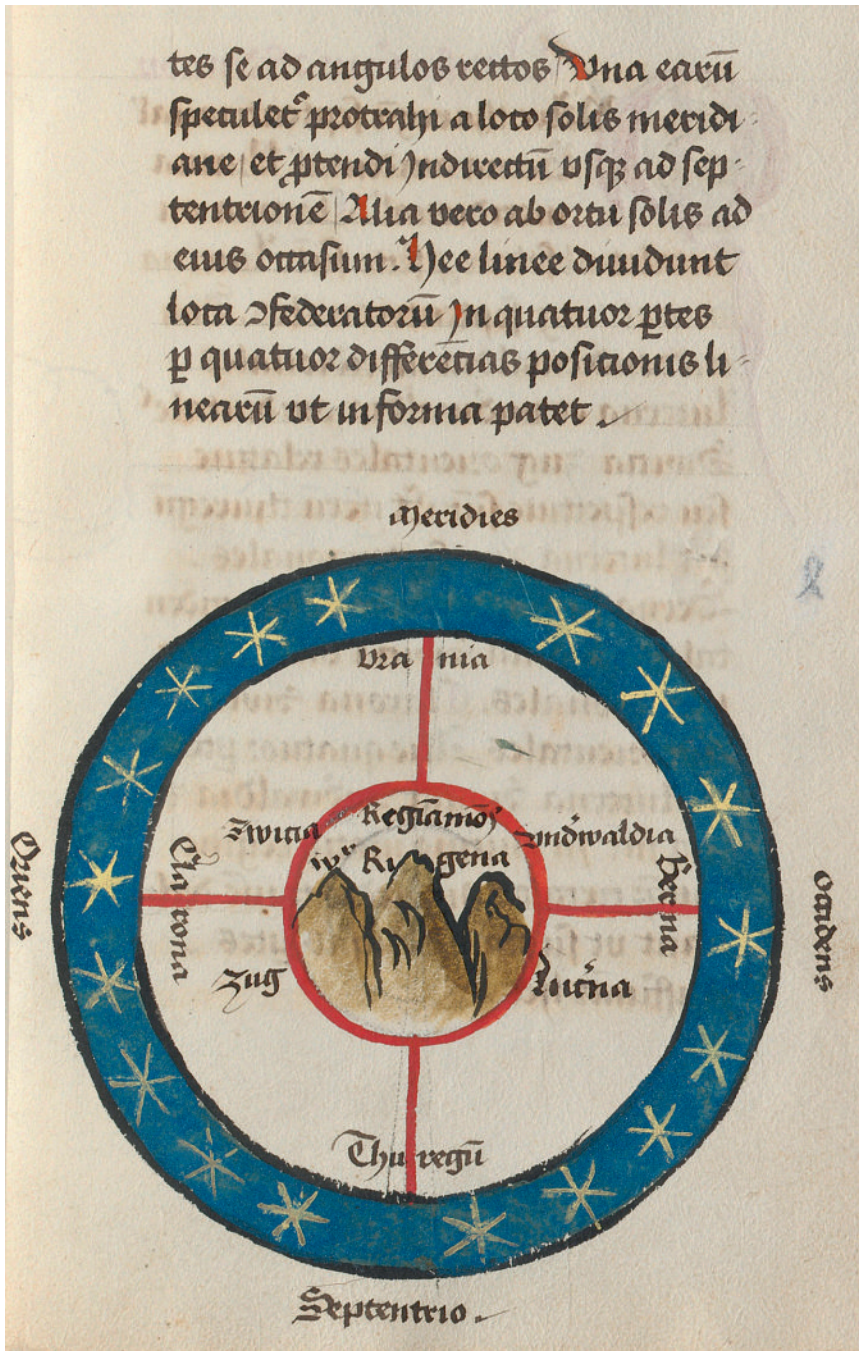 tes se ad angulos rectos Vna earū
speculet᷒ protrahi a loco solis meridi-
ane et ꝓtendi Jndirectū vsqꝫ ad sep-
tentrionē Alia vero ab ortu solis ad
eius occasum. Hee linee diuidunt
loca ꝯfederatorū Jn quatuor ꝑtes
ꝑ quatuor differēcias posicionis li-
nearū vt in forma patet.
Meridies
Vrania
Regia mōs
Switia
Vnd'waldia
Rigena
Oriens
Clarona
Berna
Occidens
Zug
Luc'na
Thuregū
Septentrio.